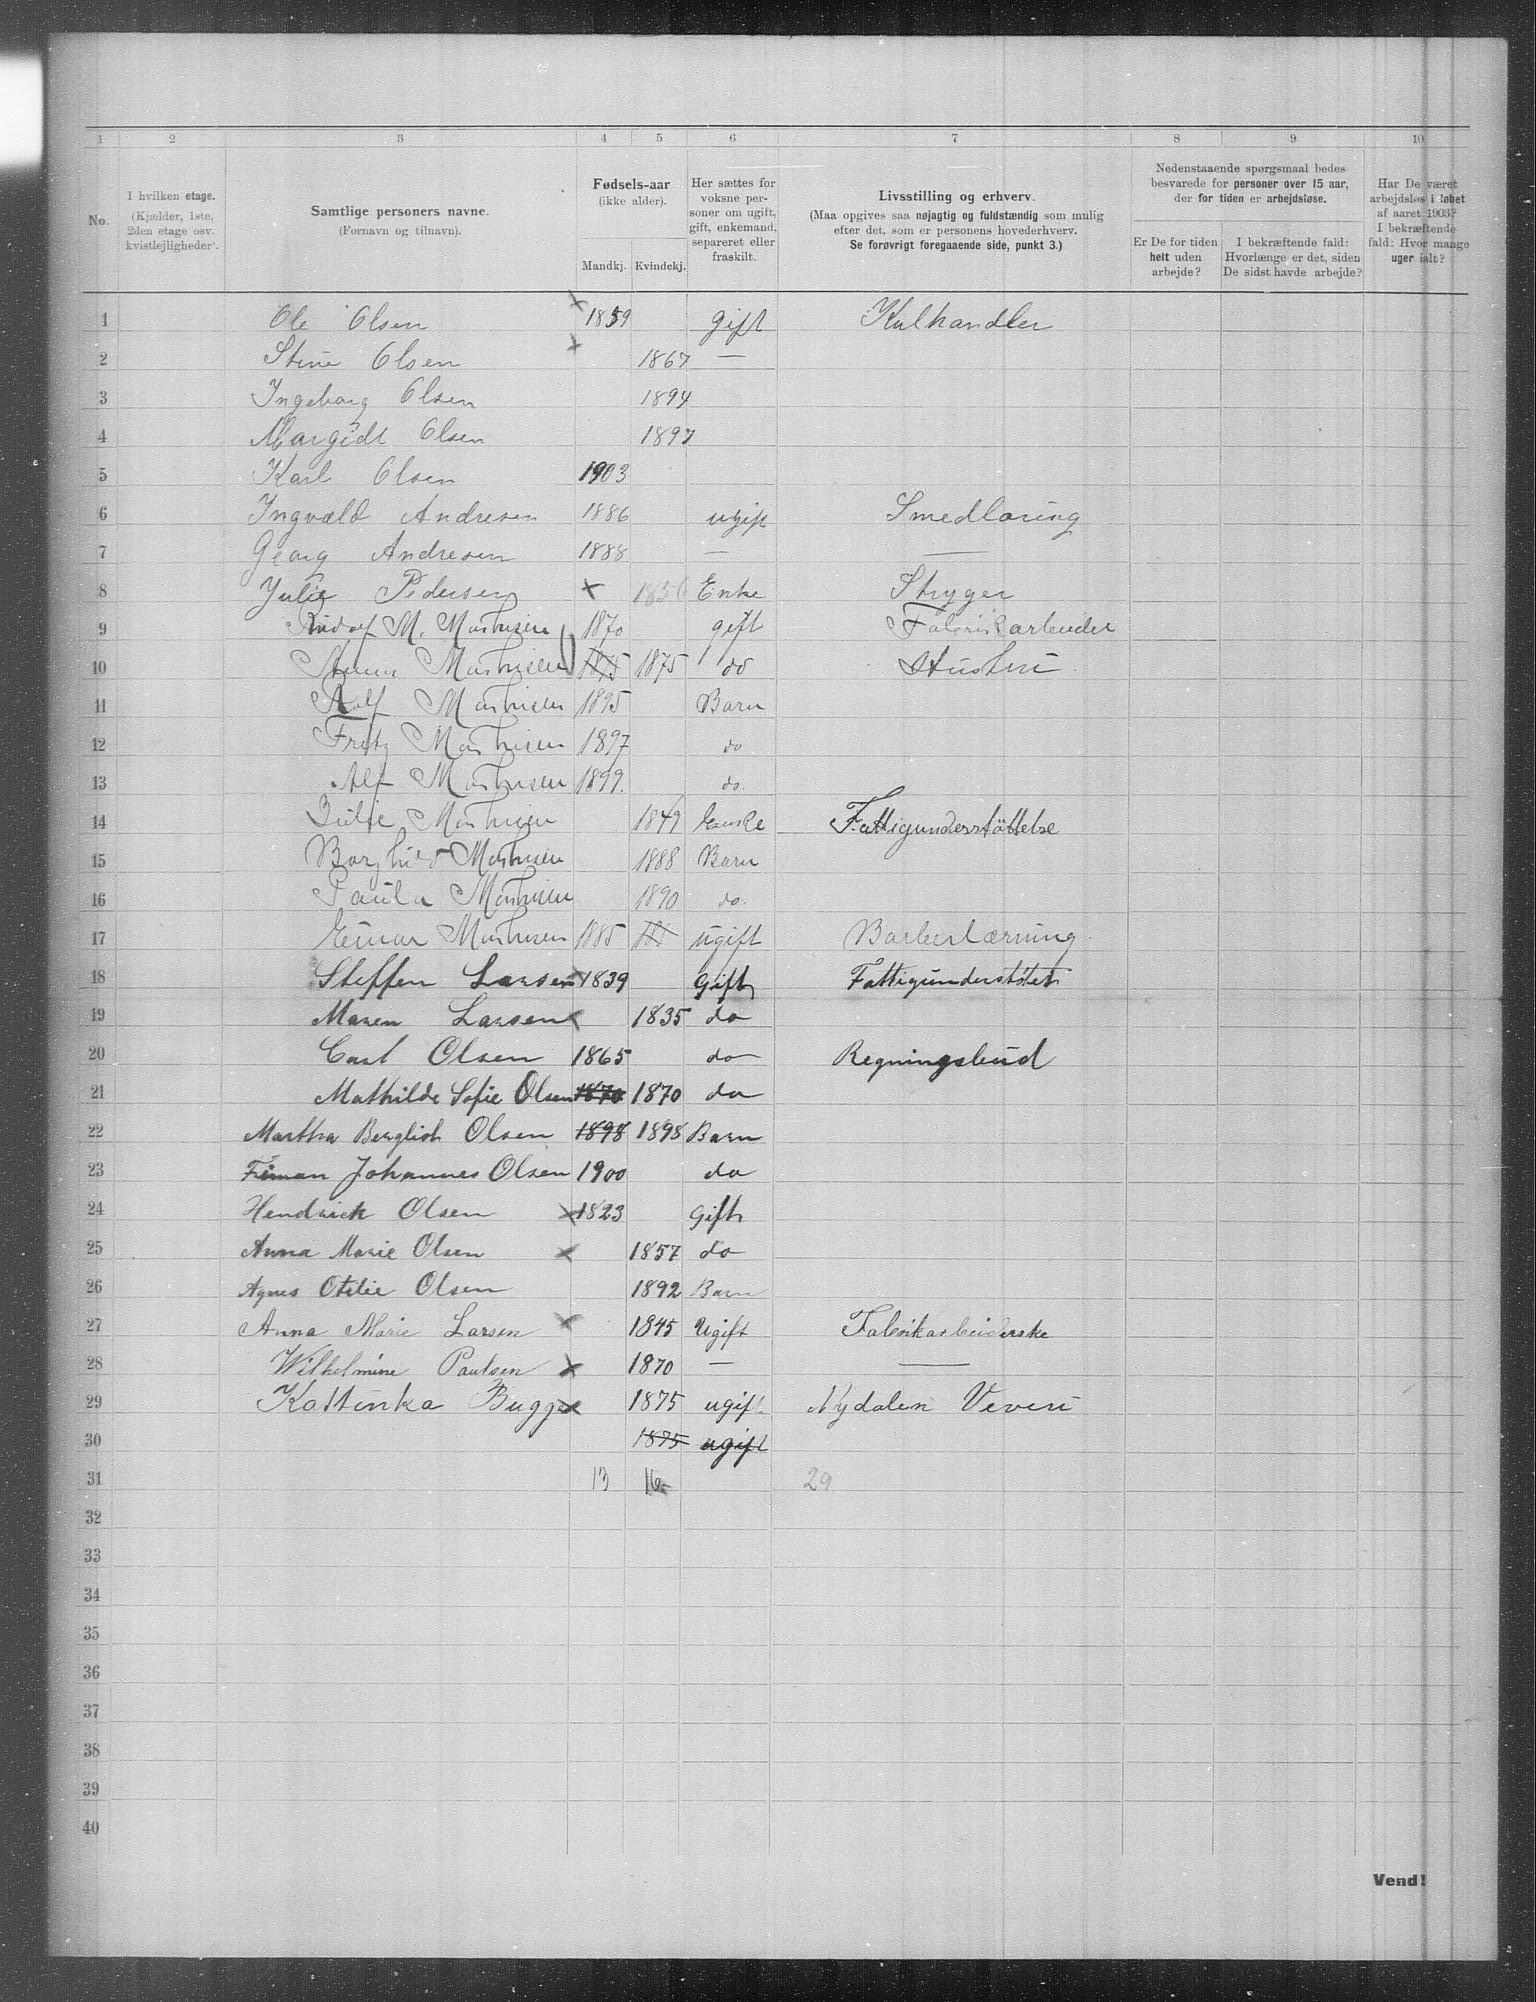 1 2 3 4 5 6 7 8 9 10
No.
I hvilken etage. (Kjælder, 1ste, 2den etage osv. kvistlejligheder).
Samtlige personers navne. (Fornavn og tilnavn).
Fødsels-aar (ikke alder).
Mandkj. Kvindekj.
Her sættes for voksne personer om ugift, gift, enkemand, separeret eller fraskilt.
Livsstilling og erhverv.
(Maa opgives saa nøjagtig og fuldstændig som mulig efter det, som er personens hovederhverv. Se forøvrigt foregaaende side, punkt 3.)
Nedenstaaende spørgsmaal bedes besvarede for personer over 15 aar, der for tiden er arbejdsløse.
Er De for tiden helt uden arbejde?
I bekræftende fald: Hvorlænge er det, siden De sidst havde arbejde?
Har De været arbejdsløs i løbet af aaret 1903? I bekræftende fald: Hvor mange uger ialt?
1 Ole Olsen × 1859 gift Kulhandler
2 Stine Olsen × 1867 —
3 Ingeborg Olsen 1894
4 Margidt Olsen 1897
5 Karl Olsen 1903
6 Ingvald Andresen 1886 ugift Smedlæring
7 Georg Andresen 1888 — —
8 Julie Pedersen × 1856 Enke Stryger
9 M. Mathisen 1870 gift Fabrikarbeider
10 Mathisen 1875 1875 do Hustru
11 Rolf Mathisen 1895 Barn
12 Fritz Mathisen 1897 do
13 Alf Mathisen 1899. do.
14 Julie Mathisen 1849 Enke Fattigunderstöttelse
15 Borghild Mathisen 1888 Barn
16 Paula Mathisen 1890 do.
17 Einar Mathisen 1885 ugift Barberlærning
18 Steffen Larsen × 1839 Gift Fattigunderstøtet
19 Maren Larsen × 1835 do
20 Carl Olsen 1865 do Regningsbud
21 Mathilde Sofie Olsen 1870 1870 do
22 Martha Bergliot Olsen 1898 1898 Barn
23 Johannes Olsen 1900 do
24 Hendrick Olsen × 1823 Gift
25 Anna Marie Olsen × 1857 do
26 Agnes Otilie Olsen 1892 Barn
27 Anna Marie Larsen × 1845 Ugift Fabrikarbeiderske
28 Wilhelmine Paulsen × 1870 — —
29 Kattinka Bugge × 1875 ugift Nydalen Veveri
30 1875 ugift
31 13 16 29
32
33
34
35
36
37
38
39
40
Vend!